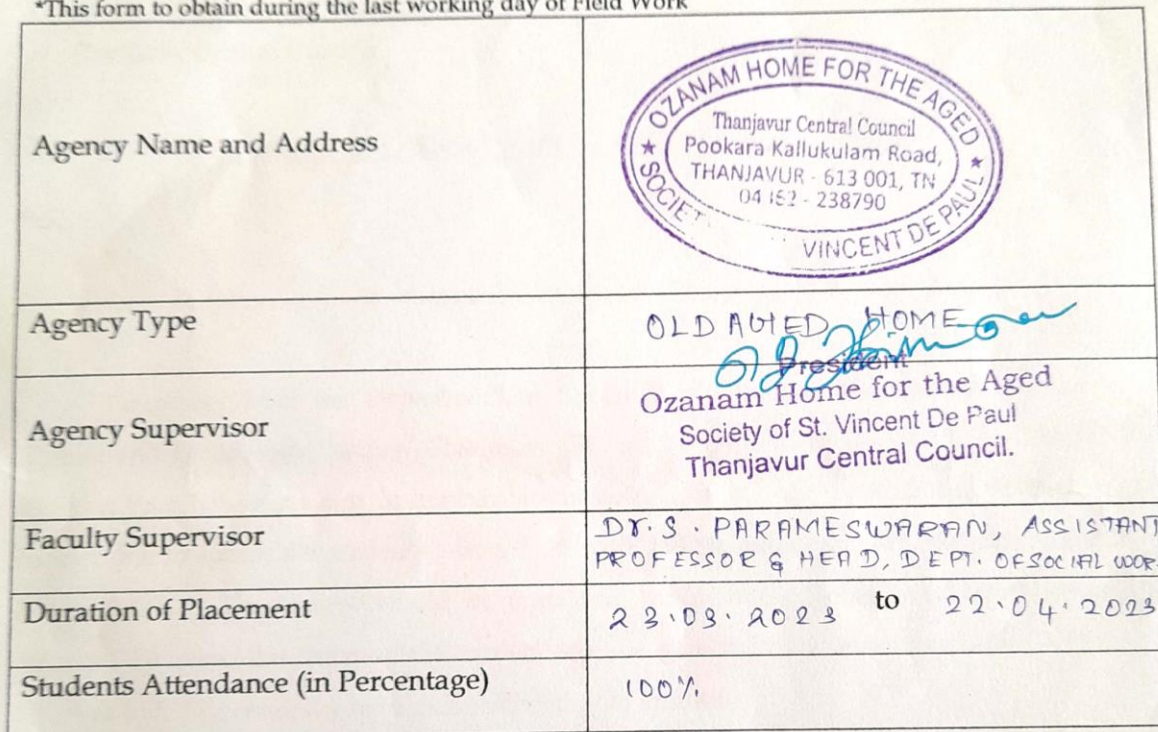 *This form to obtain during the last working day of Field Work
Agency Name and Address
OZANAM HOME FOR THE AGED
Thanjavur Central Council
Pookara Kallukulam Road,
THANJAVUR - 613 001, TN
04362 - 238790
SOCIET
VINCENT DE PAUL
Agency Type
OLD AGED HOME
President
Ozanam Home for the Aged
Society of St. Vincent De Paul
Thanjavur Central Council.
Agency Supervisor
Faculty Supervisor
Dr. S. PARAMESWARAN, ASSISTANT
PROFESSOR & HEAD, DEPT. OF SOCIAL WOR
Duration of Placement
23.03.2023 to 22.04.2023
Students Attendance (in Percentage)
100%